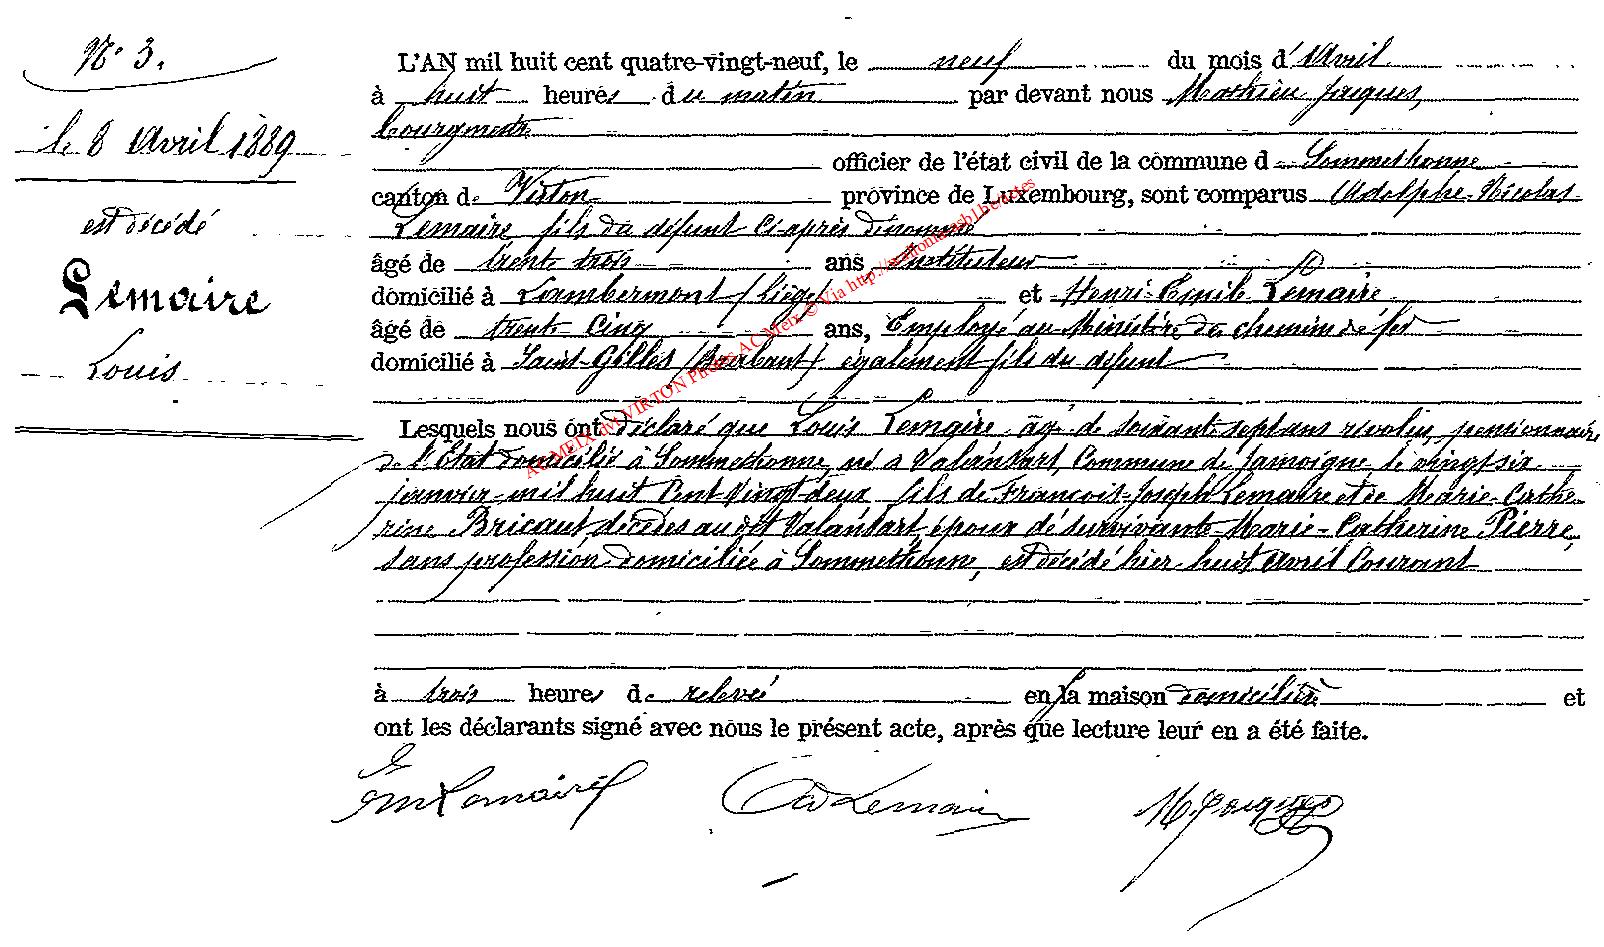 N° 3.
le 8 Avril 1889
est décédé
Lemaire
Louis
L'AN mil huit cent quatre-vingt-neuf, le neuf du mois d'Avril
à huit heures du matin par devant nous Mathieu Jacques,
bourgmestre
officier de l'état civil de la commune de Sommethonne
canton de Virton province de Luxembourg, sont comparus Adolphe-Nicolas
Lemaire, fils du défunt ci-après dénommé
âgé de trente trois ans Instituteur
domicilié à Lambermont (Liège) et Henri-Emile Lemaire
âgé de trente cinq ans, Employé au Ministère du chemin de fer
domicilié à Saint-Gilles (Brabant) également fils du défunt
Lesquels nous ont déclaré que Louis Lemaire âgé de soixante sept ans révolus, pensionnaire
de l'Etat domicilié à Sommethonne, né à Valansart, Commune de Jamoigne, le vingt six
janvier mil huit Cent Vingt-deux fils de François-Joseph Lemaire et de Marie-Cathe-
rine Bricaut décédés au dit Valansart, époux de survivante Marie-Catherine Pierre,
sans profession domiciliée à Sommethonne, est décédé hier huit Avril Courant
à trois heures de relevée en la maison domicilière et
ont les déclarants signé avec nous le présent acte, après que lecture leur en a été faite.
Em Lemaire Ad Lemaire M. Jacques